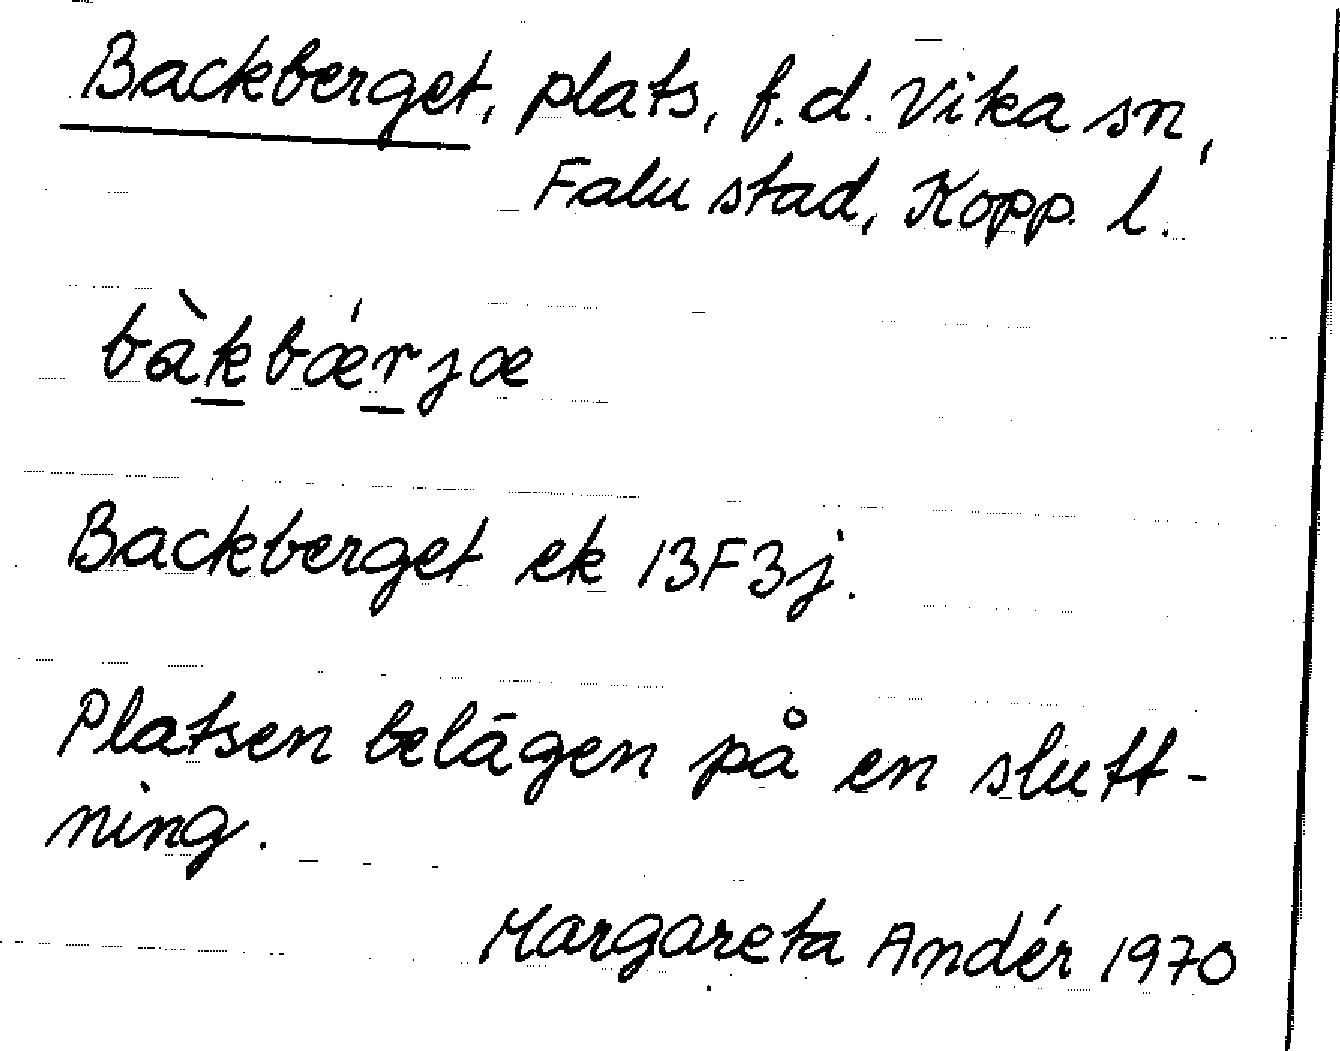 Backberget, plats, f.d. Vika sn,
Falu stad, Kopp. l.
bàkbǽrjæ
Backberget ek 13F3j.
Platsen belägen på en slutt-
ning.
Margareta Andér 1970